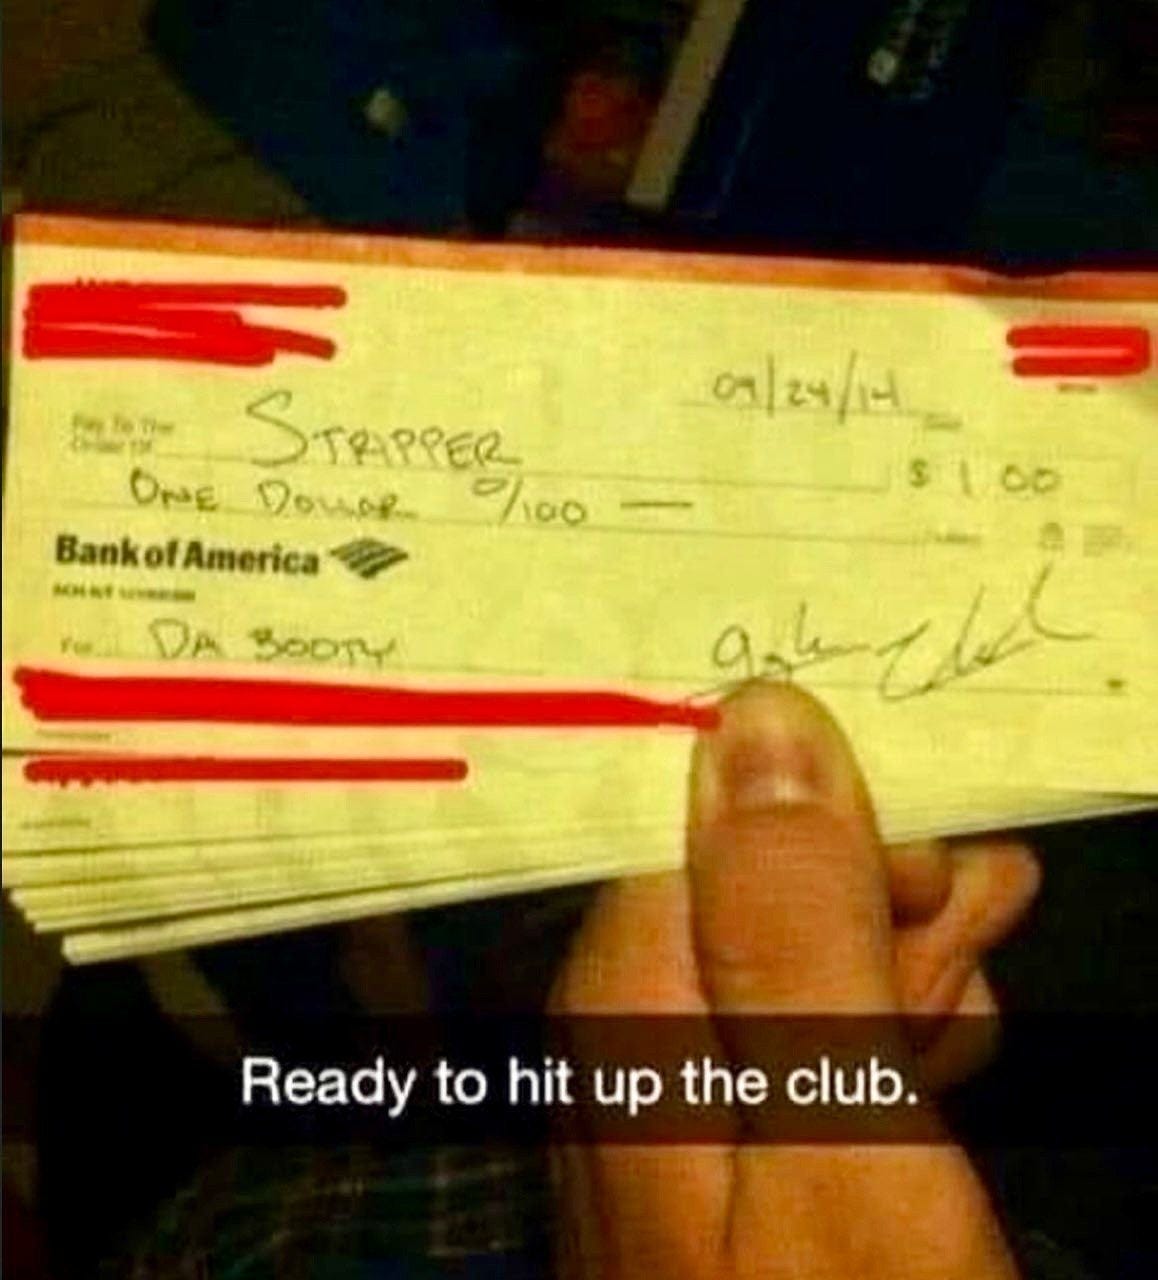 09/24/14
Pay To The
Order Of
STRIPPER
$ 1 00
ONE DOLLAR 0/100 —
Bank of America
For DA BOOTY
Ready to hit up the club.